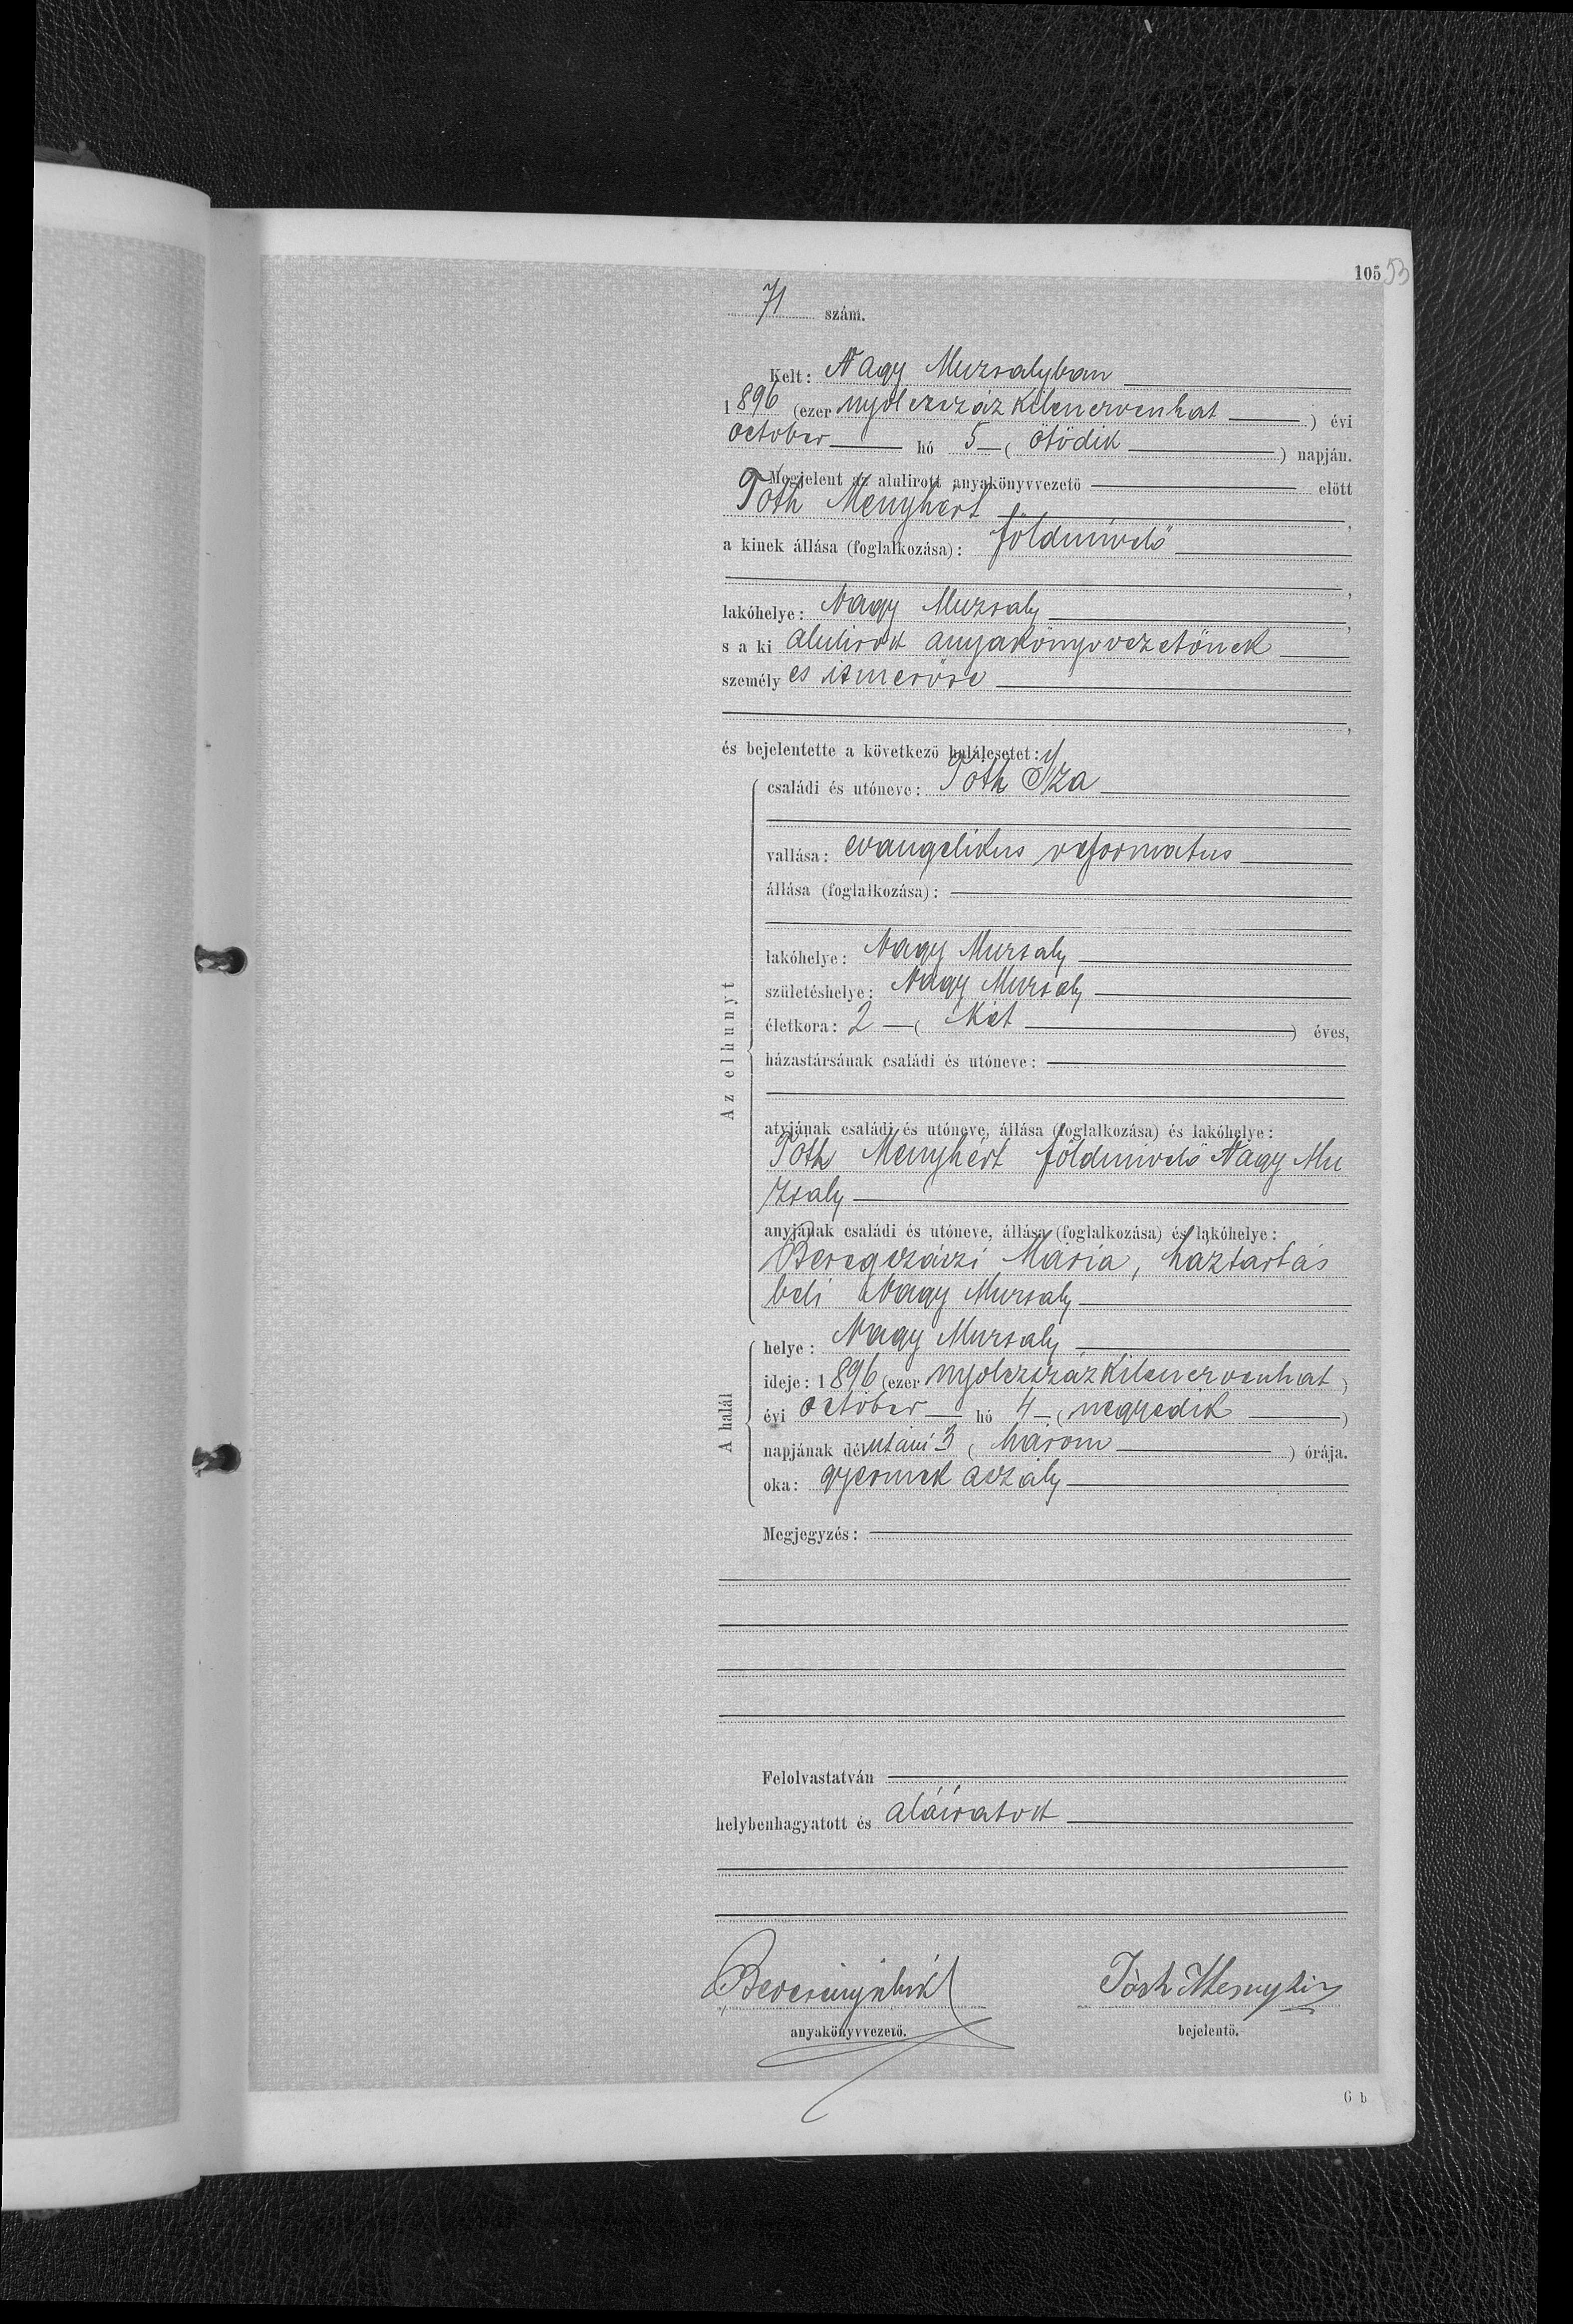 105 53
71 szám.
Kelt: Nagy Muzsalyban
1896 (ezer nyolczszáz kilenczvenhat) évi
october hó 5 (ötödik) napján.
Megjelent az alulirott anyakönyvvezető előtt
Tóth Menyhért,
a kinek állása (foglalkozása): földmivelő
,
lakóhelye: Nagy Muzsaly,
s a ki alulirott anyakönyvvezetőnek
személyes ismerőse
,
és bejelentette a következő halálesetet:
családi és utóneve: Tóth Iza
vallása: evangelikus reformatus
állása (foglalkozása):
lakóhelye: Nagy Muzsaly
születéshelye: Nagy Muzsaly
életkora: 2 (két) éves,
házastársának családi és utóneve:
atyjának családi és utóneve, állása (foglalkozása) és lakóhelye:
Tóth Menyhért földmivelő Nagy Mu
zsaly
anyjának családi és utóneve, állása (foglalkozása) és lakóhelye:
Beregszászi Mária, háztartás
beli Nagy Muzsaly
Az elhunyt
helye: Nagy Muzsaly
ideje: 1896 (ezer nyolczszáz kilenczvenhat)
évi october hó 4 (negyedik)
napjának délutáni 3 (három) órája.
oka: gyermek aszály
A halál
Megjegyzés:
Felolvastatván
helybenhagyatott és aláiratott
Tóth Menyhért
anyakönyvvezető. bejelentő.
6 b